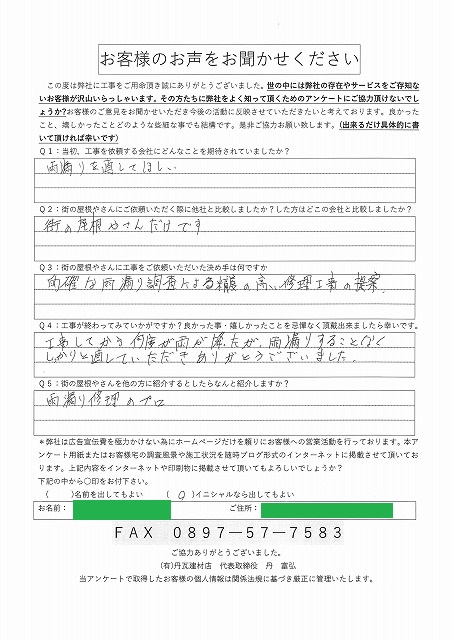 お客様のお声をお聞かせください
この度は弊社に工事をご用命頂き誠にありがとうございました。世の中には弊社の存在やサービスをご存知な
いお客様が沢山いらっしゃいます。その方たちに弊社をよく知って頂くためのアンケートにご協力頂けないでし
ょうか?お客様のご意見をお聞かせいただき今後の活動に反映させていただきたいと考えております。良かった
こと、嬉しかったことどのような些細な事でも結構です。是非ご協力お願い致します。(出来るだけ具体的に書
いて頂ければ幸いです)
Q1：当初、工事を依頼する会社にどんなことを期待されていましたか?
雨漏りを直してほしい
Q2：街の屋根やさんにご依頼いただく際に他社と比較しましたか?した方はどこの会社と比較しましたか?
街の屋根やさんだけです
Q3：街の屋根やさんに工事をご依頼いただいた決め手は何ですか
的確な雨漏り調査による精度の高い修理工事の提案。
Q4：工事が終わってみていかがですか？良かった事・嬉しかったことを忌憚なく頂戴出来ましたら幸いです。
工事してから何度が雨が降たが、雨漏りすることなく
しっかりと直していただきありがとうございました。
Q5：街の屋根やさんを他の方に紹介するとしたらなんと紹介しますか？
雨漏り修理のプロ
＊弊社は広告宣伝費を極力かけない為にホームページだけを頼りにお客様への営業活動を行っております。本ア
ンケート用紙またはお客様宅の調査風景や施工状況を随時ブログ形式のインターネットに掲載させて頂いてお
ります。上記内容をインターネットや印刷物に掲載させて頂いてもよろしいでしょうか?
下記の中から〇印をお付下さい。
( )名前を出してもよい ( ○ )イニシャルなら出してもよい
お名前： ご住所：
FAX 0897－57－7583
ご協力ありがとうございました。
(有)丹瓦建材店 代表取締役 丹 富弘
当アンケートで取得したお客様の個人情報は関係法規に基づき厳正に管理いたします。